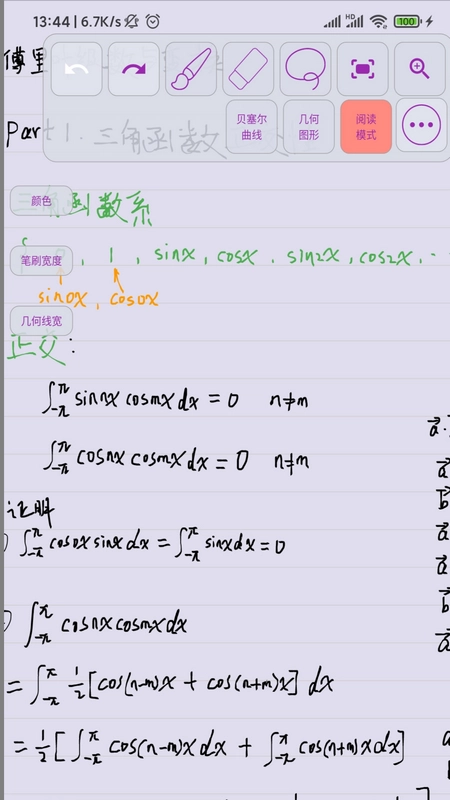 13:44 | 6.7K/s
HD
100
傅里
贝塞尔曲线
几何图形
阅读模式
Part 1. 三角函数
颜色
三角函数系
笔刷宽度
0, 1, sinx, cosx, sin2x, cos2x, ..
sin0x, cos0x
几何线宽
正交:
∫_{-π}^{π} sinnx cosmx dx = 0 n≠m
∫_{-π}^{π} cosnx cosmx dx = 0 n≠m
证明
∫_{-π}^{π} cos0x sinx dx = ∫_{-π}^{π} sinx dx = 0
∫_{-π}^{π} cosnx cosmx dx
= ∫_{-π}^{π} 1/2 [cos(n-m)x + cos(n+m)x] dx
= 1/2 [∫_{-π}^{π} cos(n-m)x dx + ∫_{-π}^{π} cos(n+m)x dx]